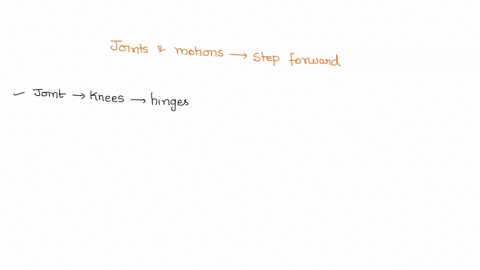 Joints & motions → Step forward
✓ Joint → Knees → hinges